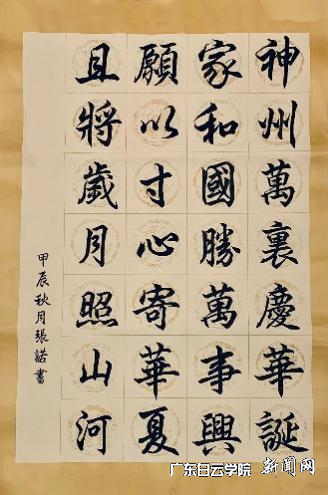 神州萬裏慶華誕
家和國勝萬事興
願以寸心寄華夏
且將歲月照山河
甲辰秋月張諾書
广东白云学院 新闻网